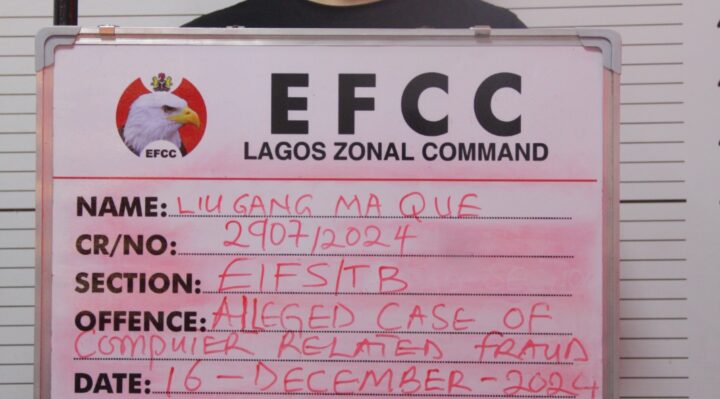 EFCC
EFCC
LAGOS ZONAL COMMAND
NAME: LIU GANG MA QUE
CR/NO: 2907/2024
SECTION: EIFS/TB
OFFENCE: ALLEGED CASE OF
COMPUTER RELATED FRAUD
DATE: 16-DECEMBER-2024